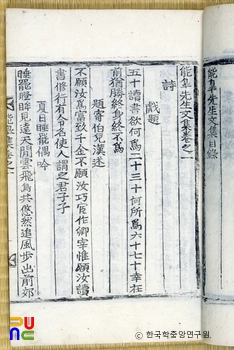 能皐先生文集卷之一
詩
戱題
五十讀書欲何爲二十三十何所爲六十七十幸在
前猶勝終身終不爲
題寄伯兒漢述
不願汝爲富致千金不願汝巧宦作卿宰惟願汝讀
書修行有令名使人謂之君子子
夏日睡罷偶吟
睡罷睜眸見遠天閒雲飛鳥共悠然追風步出前郊
能皐先生文集目錄
PUNC
ⓒ 한국학중앙연구원